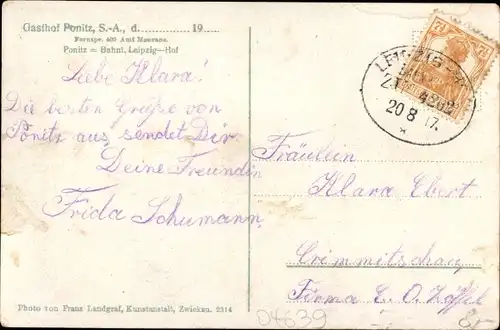 Gasthof Ponitz, S.-A., d. 19
Fernspr. 400 Amt Meerane.
Ponitz = Bahnl. Leipzig-Hof
Liebe Klara!
Die besten Grüße von
Ponitz aus, sendet Dir
Deine Freundin
Frida Schumann.
LEIPZIG
20 8 17.
Fräulein
Klara Ebert
Crimmitschau
Firma C. O. Zöffel
Photo von Franz Landgraf, Kunstanstalt, Zwickau. 2214
04639
8,-